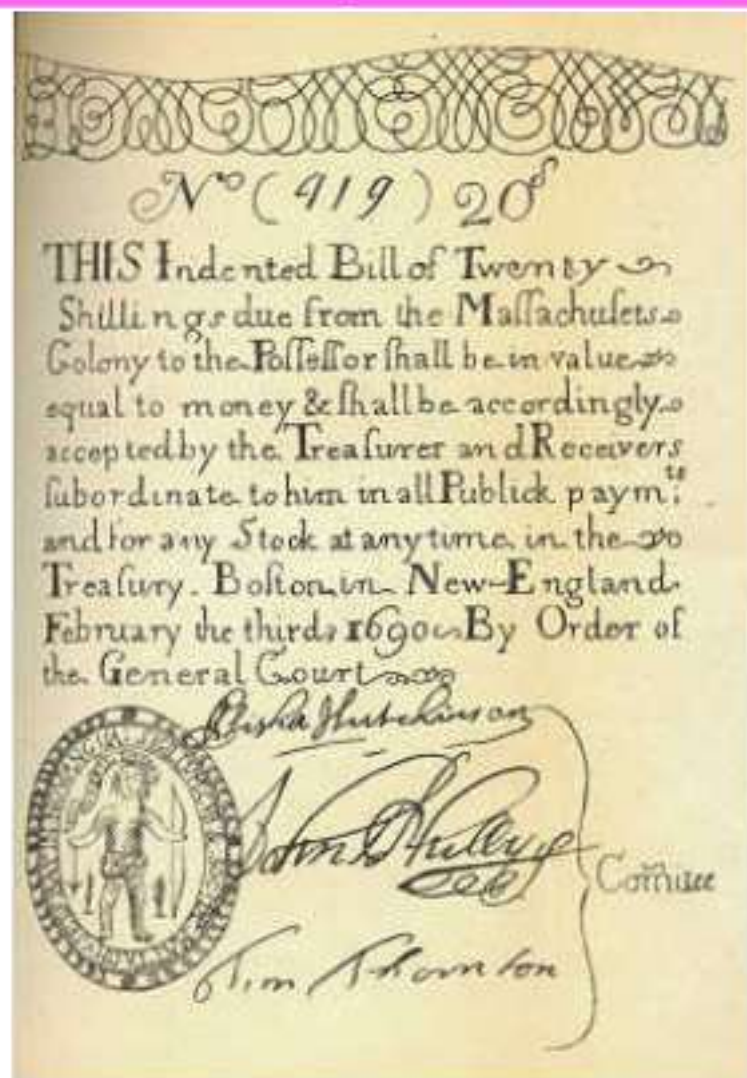 Nº (919) 20ˢ
THIS Indented Bill of Twenty
Shillings due from the Maſſachuſets
Colony to the Poſſeſſor ſhall be in value
equal to money & ſhall be accordingly
accepted by the Treaſurer and Receivers
ſubordinate to him in all Publick paymᵗˢ
and for any Stock at any time in the
Treaſury. Boſton in New-England
February the third 1690 By Order of
the General Court
Eliſha Hutchinson
John
Tim Thornton
Com̃itee